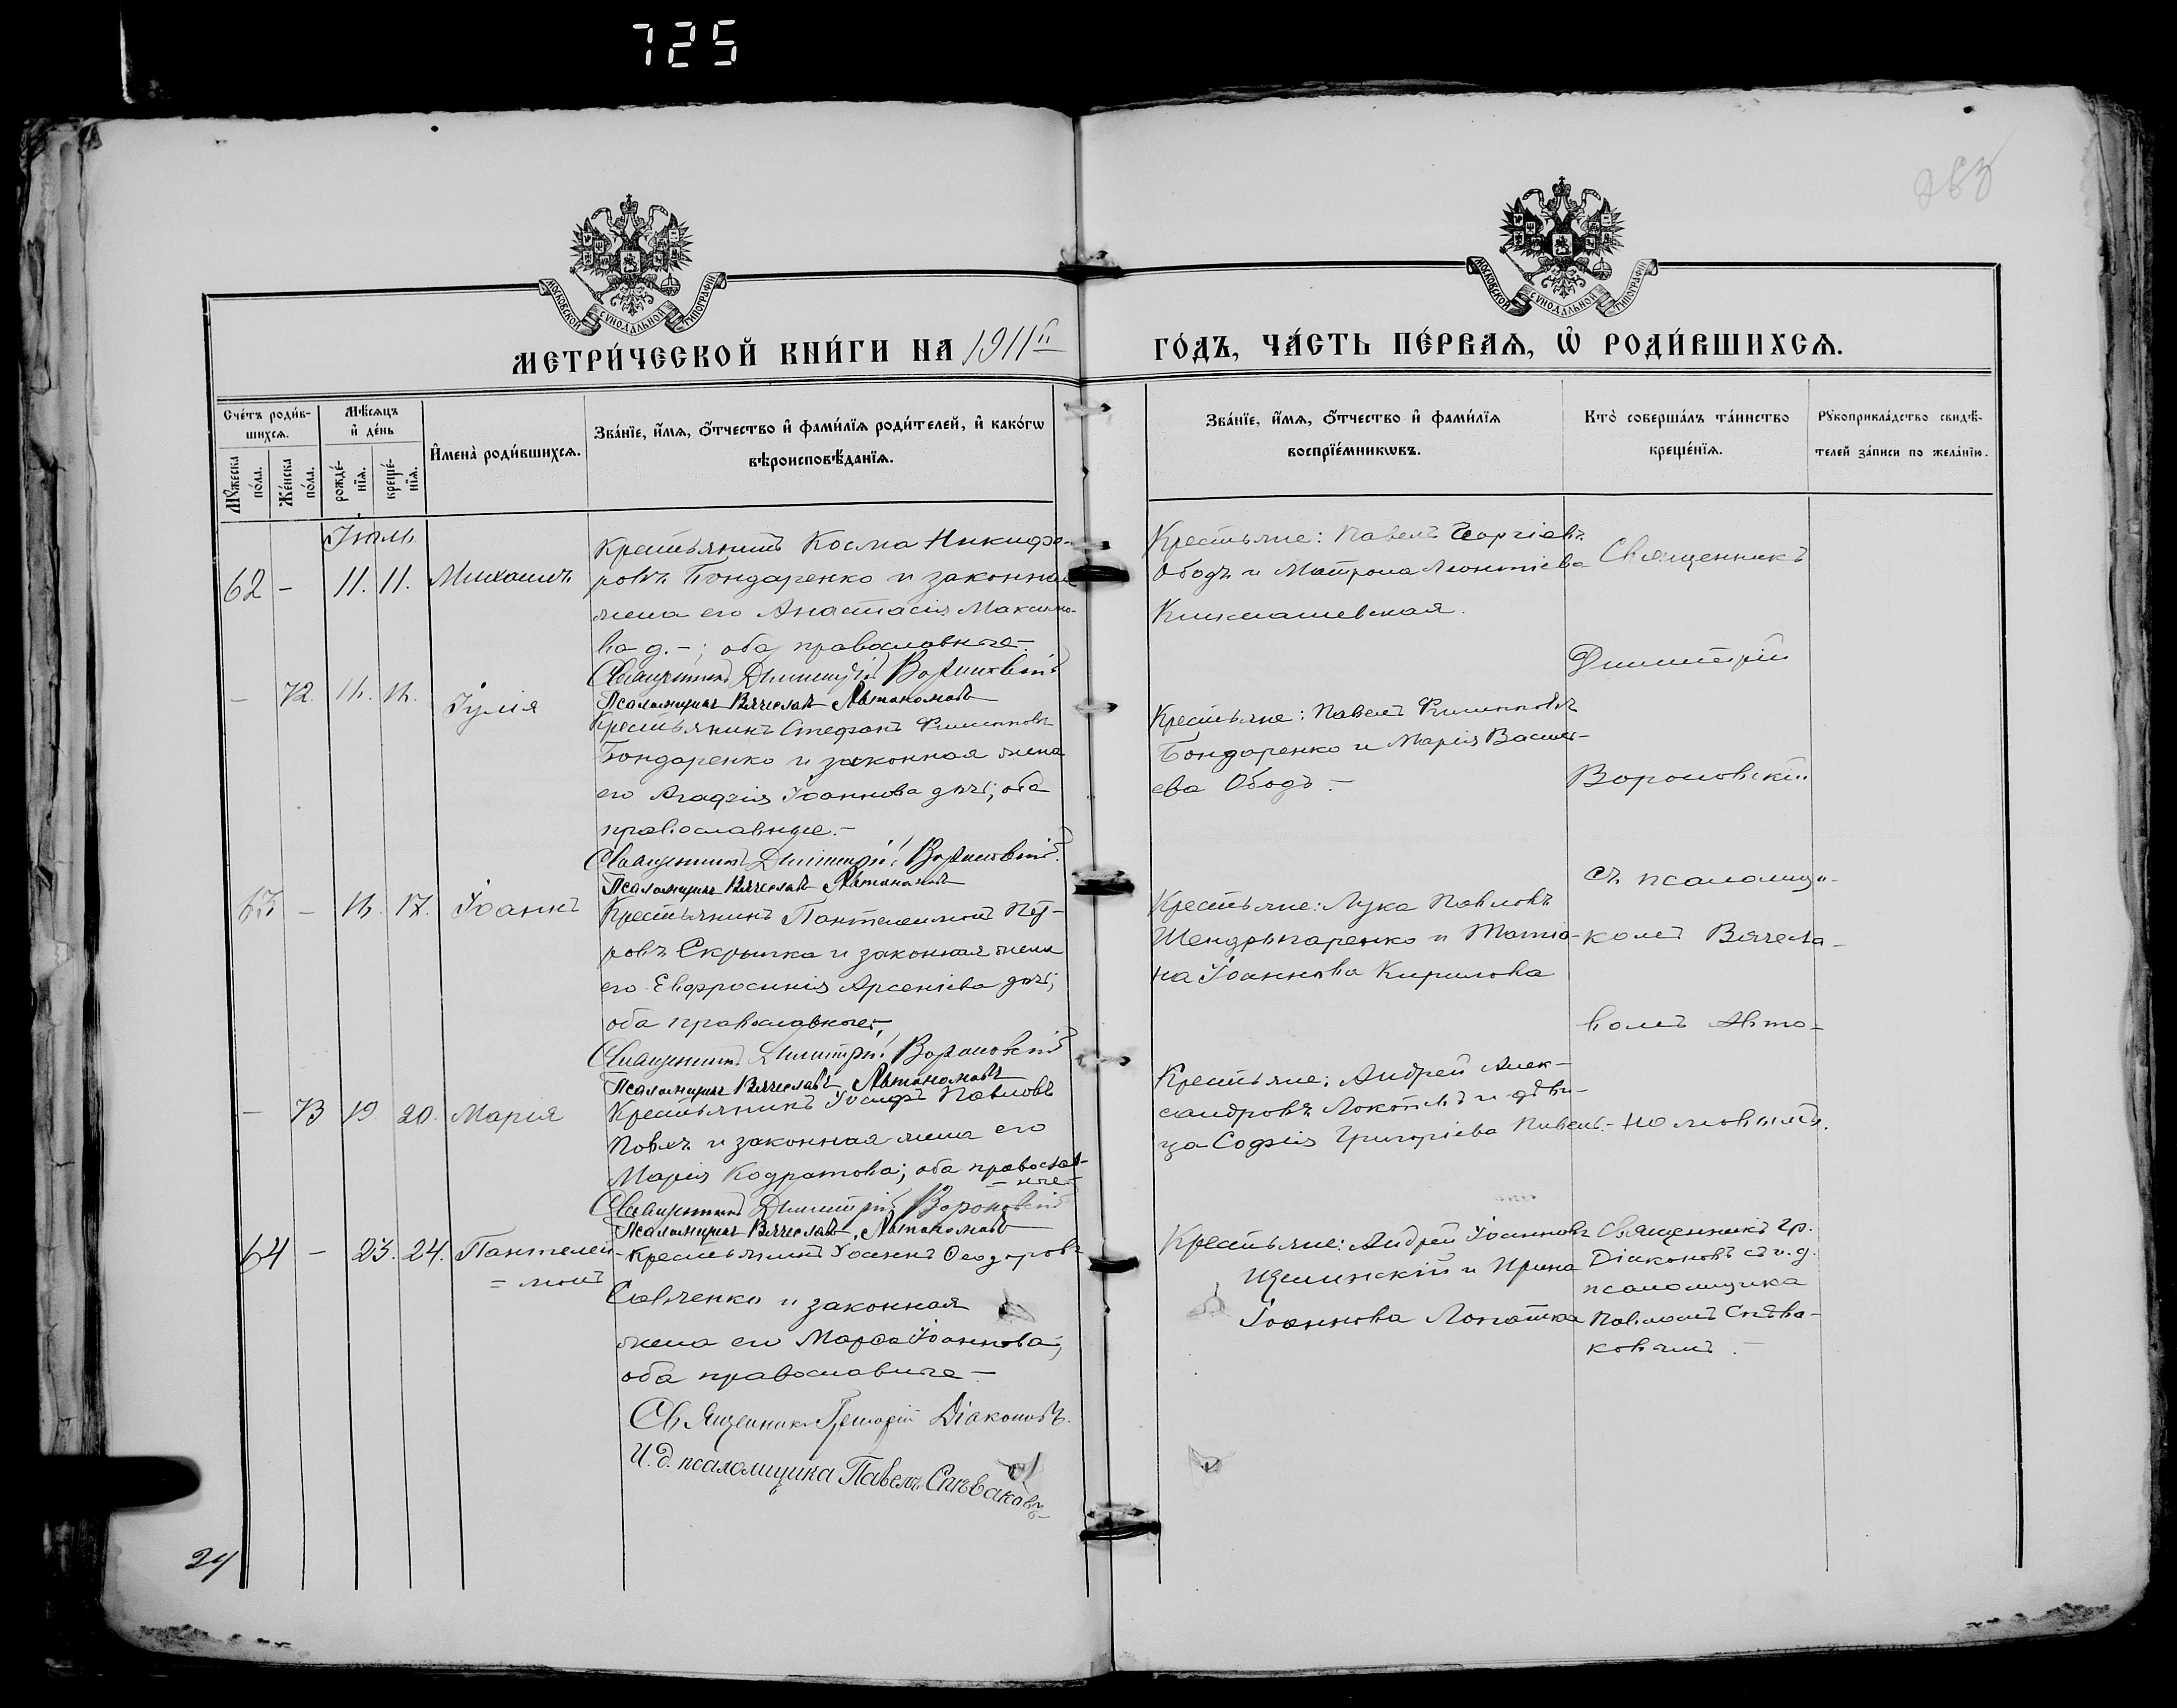 725
283
МОСКОВСКОЙ СУНОДАЛЬНОЙ ТИПОГРАФІИ
МОСКОВСКОЙ СУНОДАЛЬНОЙ ТИПОГРАФІИ
МЕТРИ́ЧЕСКОЙ КНИ́ГИ НА 1911й
ГО́ДЪ, ЧА́СТЬ ПЕ́РВАѦ, Ѡ РОДИ́ВШИХСѦ.
Сче́тъ роди́в-
шихсѧ.
Мꙋ́жеска по́ла.
Же́нска по́ла.
Мѣ́сѧцъ
и҆ де́нь
рожде́-
нїѧ.
креще́-
нїѧ.
И҆мена̀ роди́вшихсѧ.
Зва́нїе, и҆́мѧ, ѻ҆́тчество и҆ фами́лїѧ роди́телей, и҆ како́гѡ
вѣроисповѣ́данїѧ.
Зва́нїе, и҆́мѧ, ѻ҆́тчество и҆ фами́лїѧ
воспрїе́мникѡвъ.
Кто̀ соверша́лъ та́инство
креще́нїѧ.
Рꙋкоприкла́дство свидѣ́-
телей за́писи по жела́нїю.
Іюль
62 - 11. 11. Михаилъ
Крестьянинъ Косма Никифо-
ровъ Бондаренко и законная
жена его Анастасія Максимо-
ва д.-; оба православные.-
Священникъ Димитрій Вороновскій
Псаломщикъ Вячеславъ Автономовъ
Крестьяне: Павелъ Георгіевъ
Ободъ и Матрона Леонтіева
Священникъ
Димитрій
Вороновскій
съ псаломщи-
комъ Вячесла-
вомъ Авто-
номовымъ.
- 72. Іулія
Крестьянинъ Стефанъ Филипповъ
Бондаренко и законная жена
его Агафія Іоаннова дочь; оба
православные.-
Священникъ Димитрій Вороновскій
Псаломщикъ Вячеславъ Автономовъ
Крестьяне: Павелъ Филипповъ
Бондаренко и Марія Васил-
ева Ободъ.-
63 - 17. Іоаннъ
Крестьянинъ Пантелеимонъ Пет-
ровъ Скрыпка и законная жена
его Евфросинія Арсеніева дочь;
оба православные,
Священникъ Димитрій Вороновскій
Псаломщикъ Вячеславъ Автономовъ
Крестьяне: Лука Павловъ
и Татіа-
на Іоаннова Кирилова
- 73 19. 20. Марія
Крестьянинъ Іосифъ Павловъ
и законная жена его
Марія Кодратова; оба православ-
- ные
Священникъ Димитрій Вороновскій
Псаломщикъ Вячеславъ Автономовъ
Крестьяне: Андрей Алек-
сандровъ Локоть и дѣви-
ца Софія Григоріева Пивень.-
64 - 23. 24. Пантелеи
= монъ
Крестьянинъ Іоаннъ Ѳеодоровъ
Савченко и законная
жена его Марѳа Іоаннова;
оба православные -
Священникъ Григорій Діаконовъ.
И. д. псаломщика Павелъ Спѣваковъ
Крестьяне: Андрей Іоанновъ
и Ирина
Іоаннова Лопатка
Священникъ Гр.
Діаконовъ съ и. д.
псаломщика
Павломъ Спѣва-
ковымъ.-
24